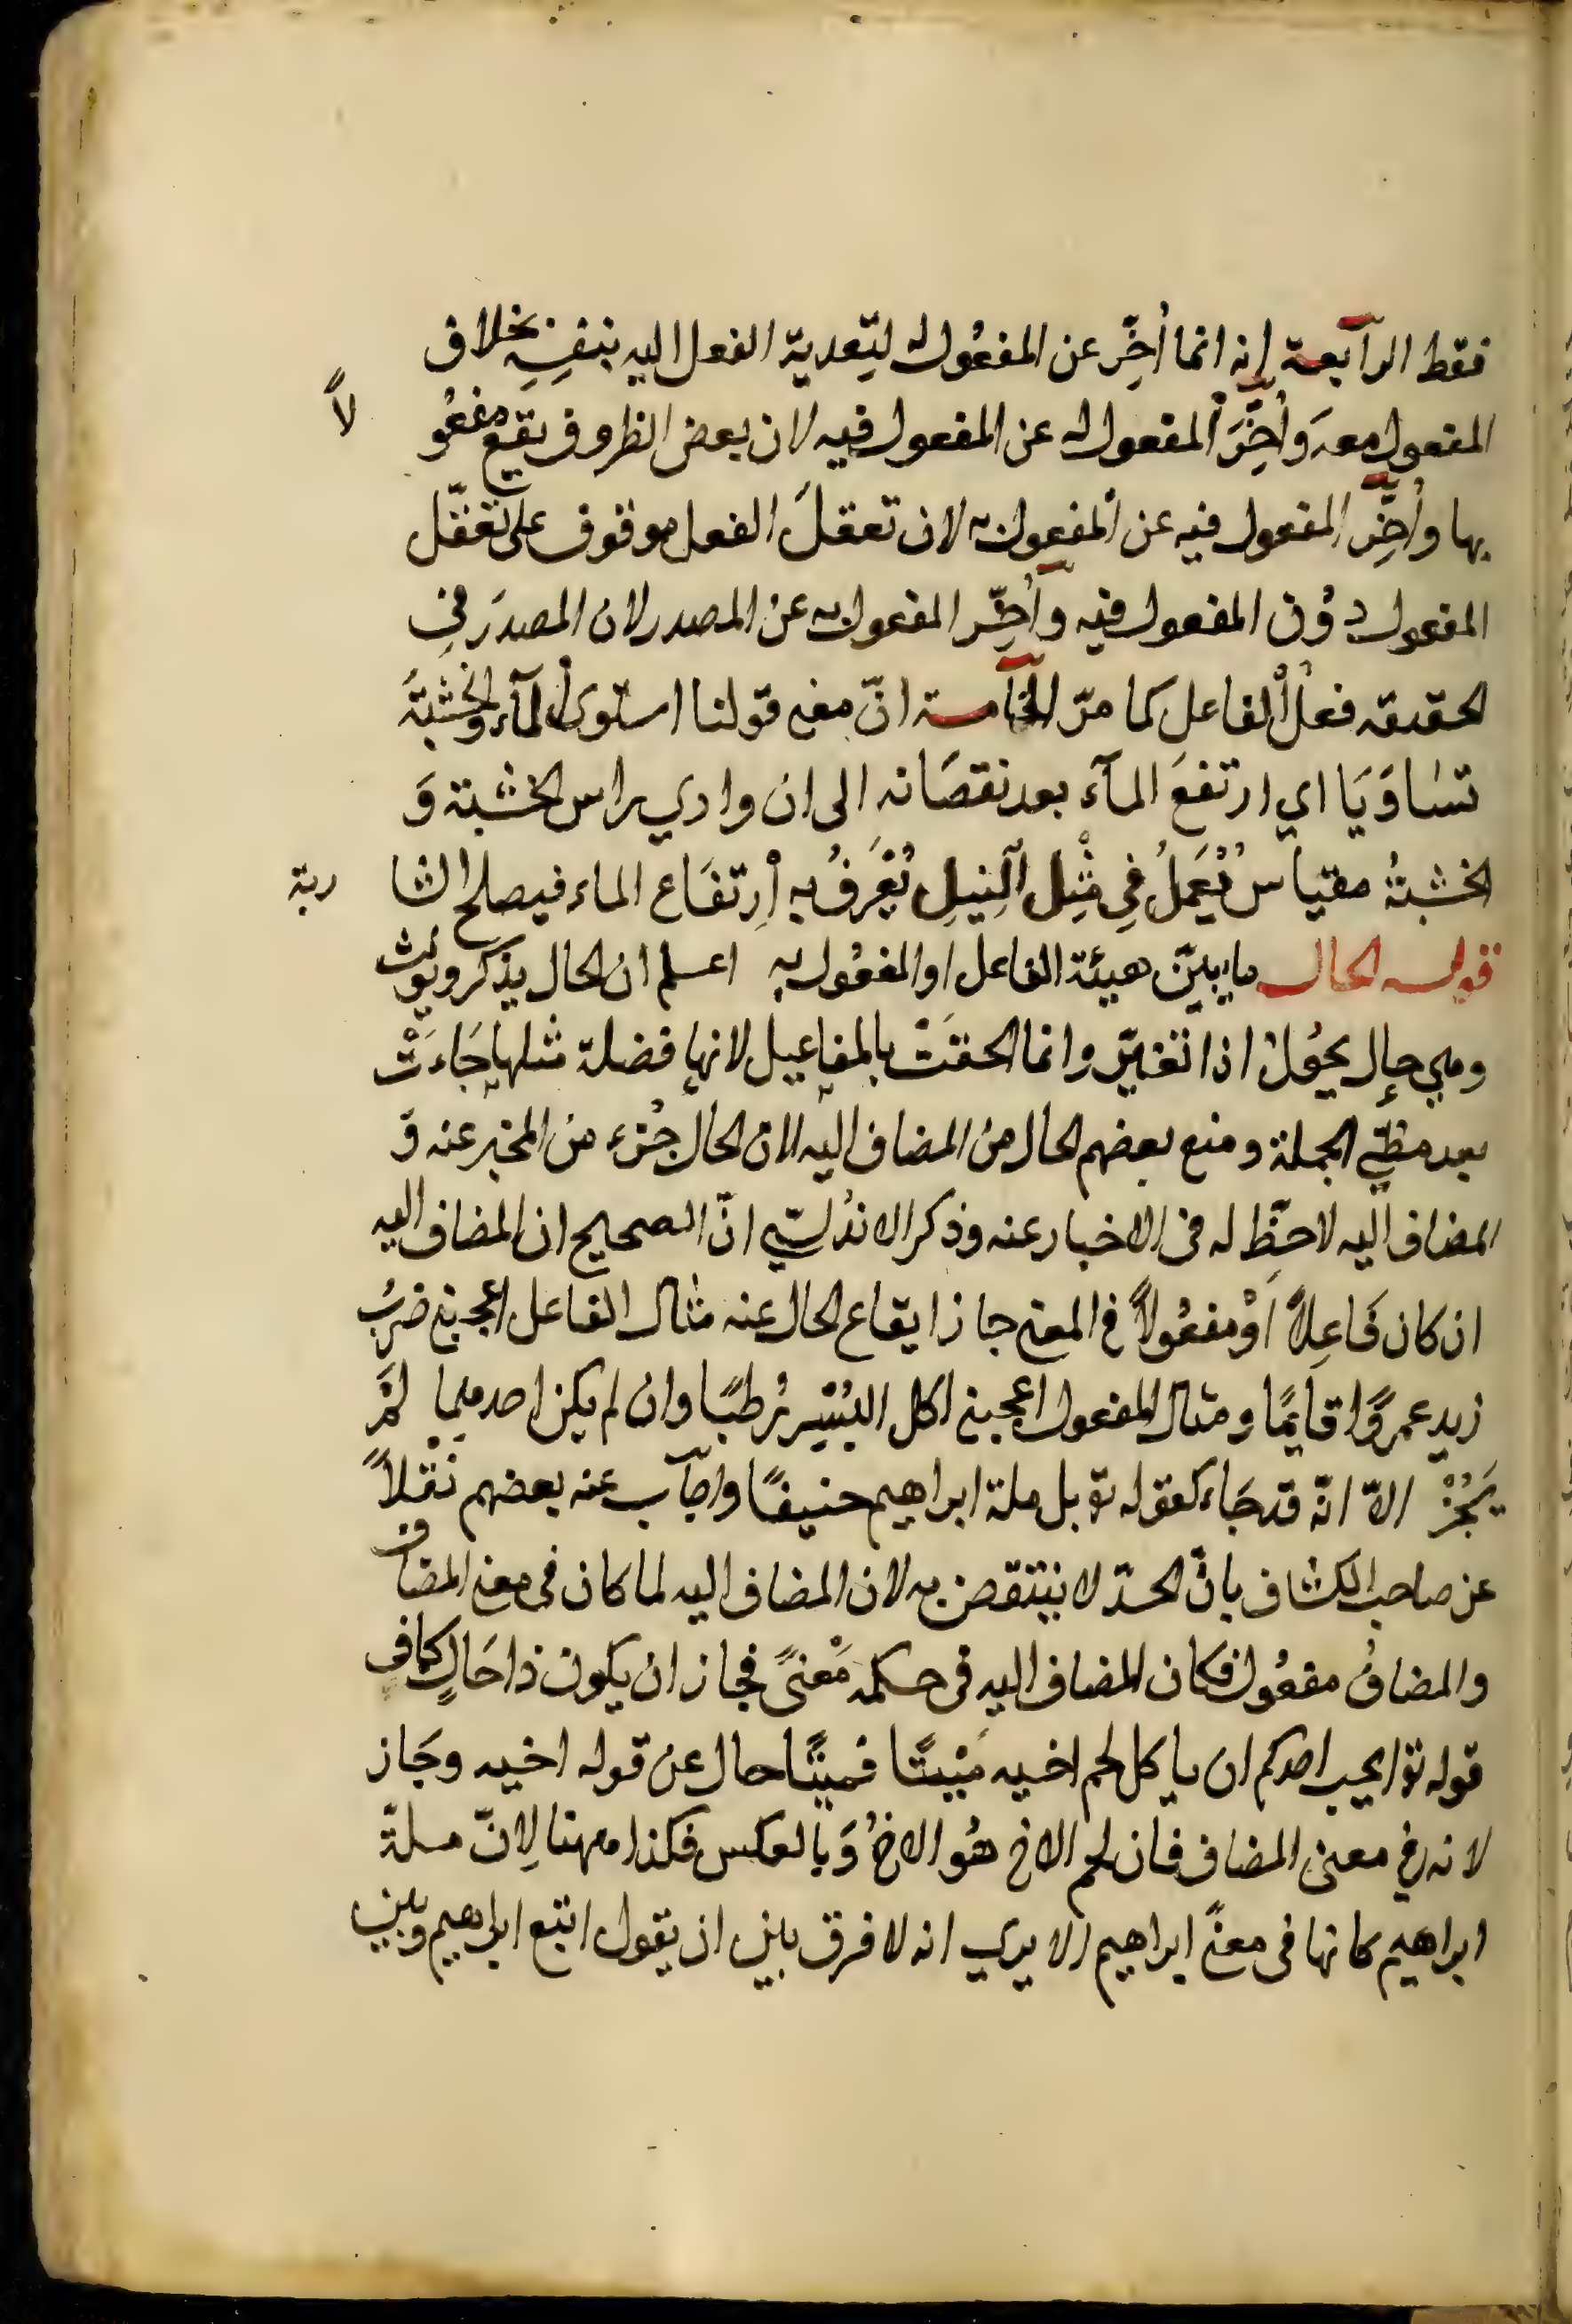 فقط الرابعة انه انما اُخِّر عن المفعول له لتعدية الفعل اليه بنفسِه بخلاف
المفعول معه واُخِّرَ المفعول له عن المفعول فيه لان بعض الظروف يقع مفعو لاً
بها واُخِّر المفعول فيه عن المفعول به لان تعقلَ الفعل موقوف على تعقّل
المفعول دُون المفعول فيه واُخِّر المفعول به عن المصدر لان المصدرَ في
الحقيقه فعل الفاعل كما مرّ الخامسة انّ معنى قولنا استوى المآء والخشبةَ
تساوَيَا اي ارتفعَ المآء بعد نقصَانه الى ان وازي براس الخشبة وَ
الخشبةُ مقياس يُعمَلُ فِي مثِل النِيلِ يُعْرَفُ به اِرتفَاع الماء فيصلح الشا ربة
قوله الحال ما يبيّن هيئة الفاعل او المفعُول به اعلم ان الحال يذكر ويؤنث
وهي حال يحوُل اذا تغيّر وانما الحقَت بالمفاعيل لانها فضلة مثلها جَاءَتْ
بعد مضّي الجملة ومنع بعضهم الحال من المضاف اليه لان الحال جُزء من المخبر عنه وَ
المضاف اليه لا حظّ له فى الاخبار عنه وذكر الاندلسّي انّ الصحيح ان المضاف اليه
ان كان فَاعِلاً اَوْ مفعُولاً في المعنى جاز ايقاع الحال عنه مثال الفاعل اعجبني ضربُ
زيد عمروًا قايمًا ومثال المفعول اعجبني اكل البُسْرِ رُطبًا وان لم يكن احدهما لمَ
يَجُزْ الاّ انّه قد جَاء كقوله تع بل ملة ابراهيم حنيفًا واجآب عنه بعضهم نَقْلاً
عن صاحب الكشاف بانّ الحدّ لا ينتقص به لان المضاف اليه لما كان فى معنى المضاف
والمضافُ مفعُول فكان المضاف اليه فى حكمه مَعْنىً فجاز ان يكون ذا حَالٍ كما في
قوله تع ايحب احدكم ان ياكل لحم اخيه مَيْتًا فميتًا حال عن قوله اخيه وجَاز
لانه في معنى المضاف فان لحم الاخ هُو الاخُ وَبالعكس فكذا ههنا لِانّ ملة
ابراهيم كانها فى معنًى ابراهيم الا يري انه لا فرق بين ان يقول اتبع ابراهيم وبين